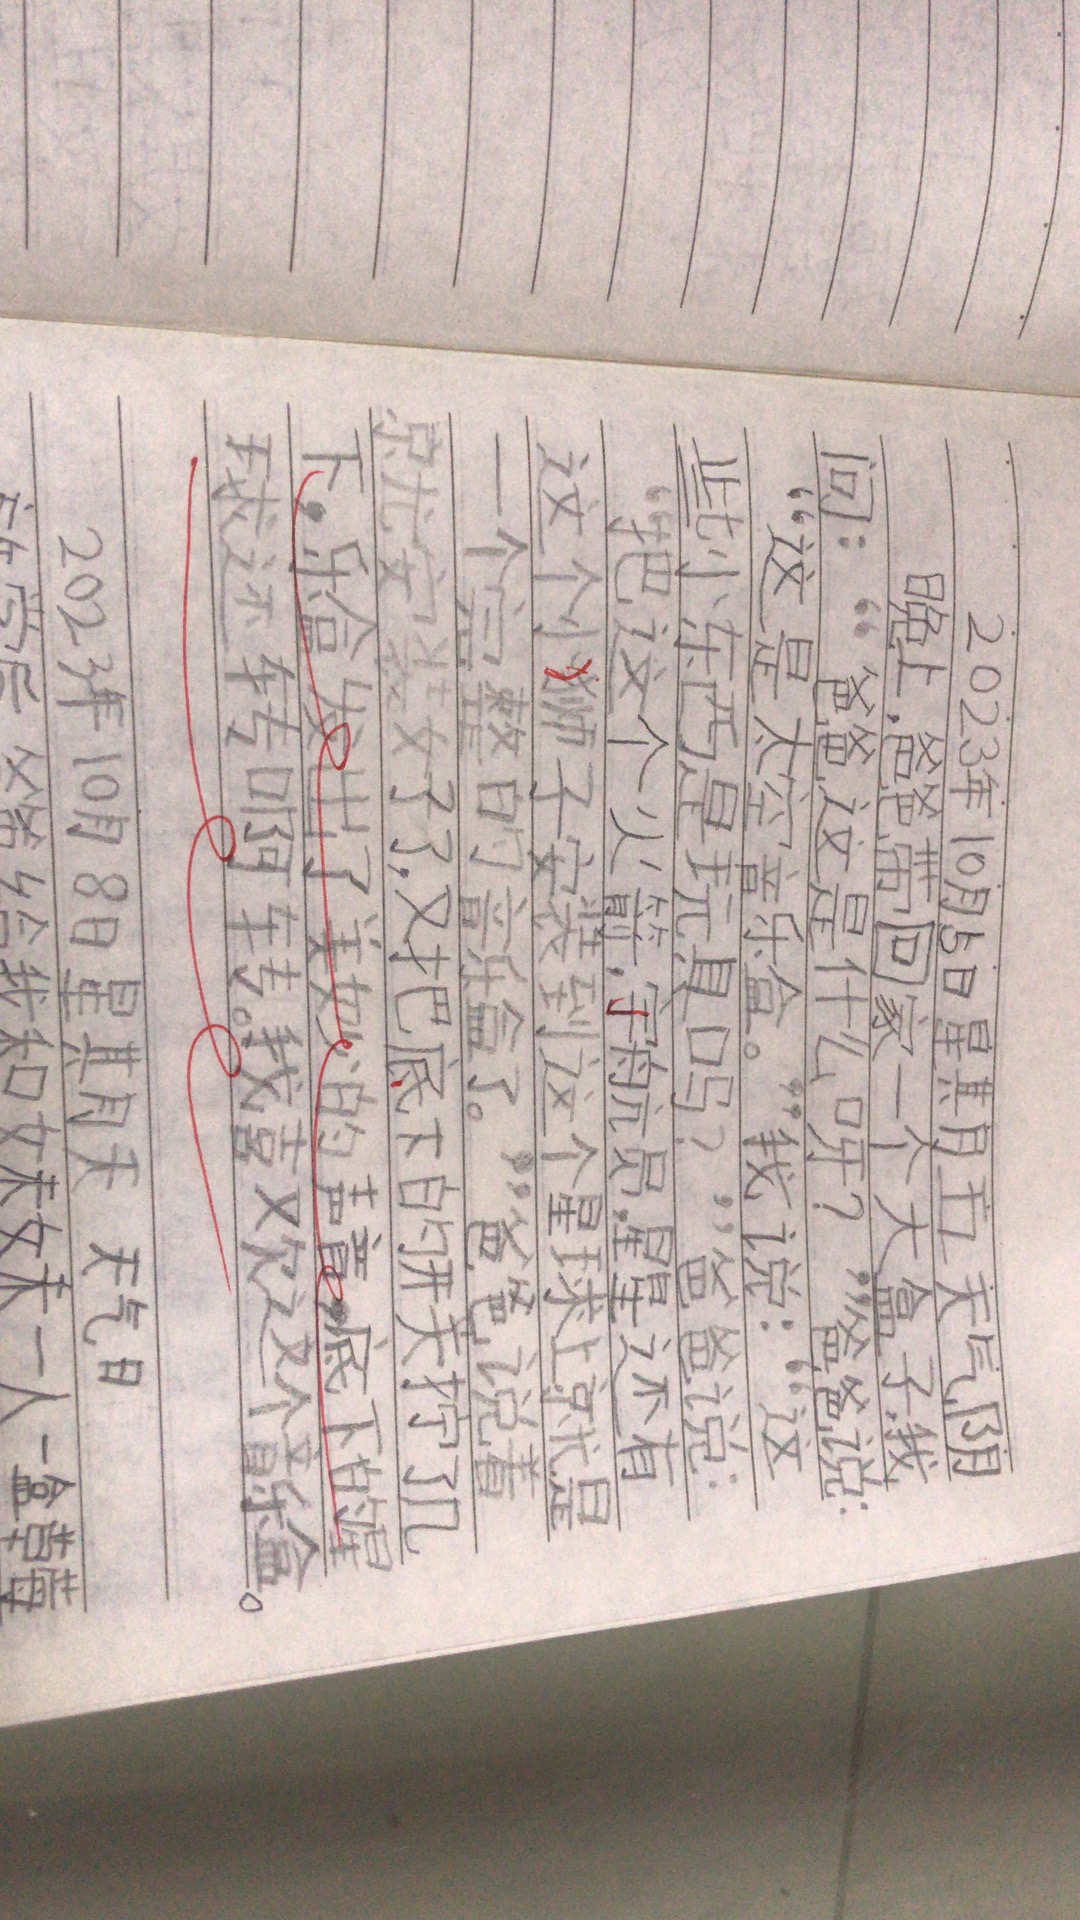 2023年10月5日 星其月五 天气阴
晚上,爸爸带回家一个大盒子,我
问:“爸爸这是什么呀?”爸爸说:
“这是太空音乐盒。”我说:“这
些小东西是玩具吗?”爸爸说:
“把这个火箭,宇航员,星球还有
这个小狮子安装到这个星球上就是
一个完整的音乐盒了。”爸爸说着
就安装好了,又把底下的开关拧了几
下,乐盒发出了美妙的声音,底下的星
球还转啊转。我喜欢这个音乐盒。
2023年10月8日 星其月天 天气日
放学后 爸爸给我和妹妹一人一盒草莓